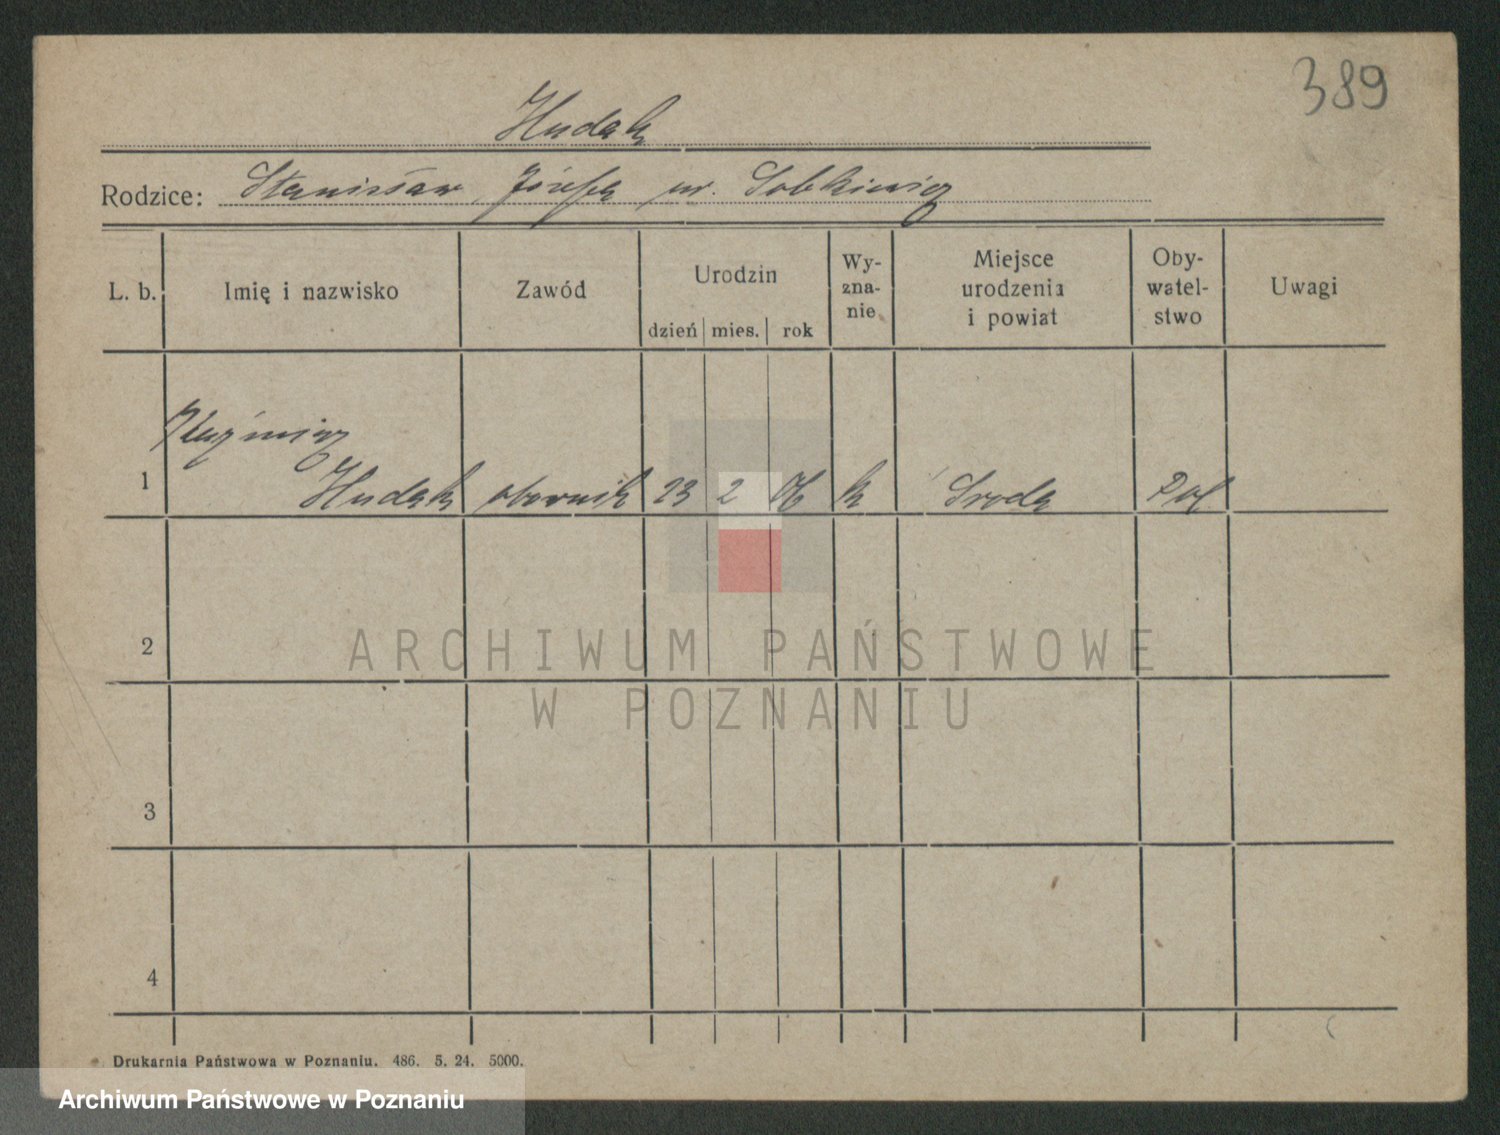 389
Hudak
Rodzice: Stanisław, Józefa ur. Sobkiewicz
L. b. Imię i nazwisko Zawód Urodzin dzień mies. rok Wy-zna-nie Miejsce urodzenia i powiat Oby-watel-stwo Uwagi
Kaźmierz
1 Hudak 23 2 06 k Środa Pol.
2
ARCHIWUM PAŃSTWOWE
W POZNANIU
3
4
Drukarnia Państwowa w Poznaniu. 486. 5. 24. 5000.
Archiwum Państwowe w Poznaniu